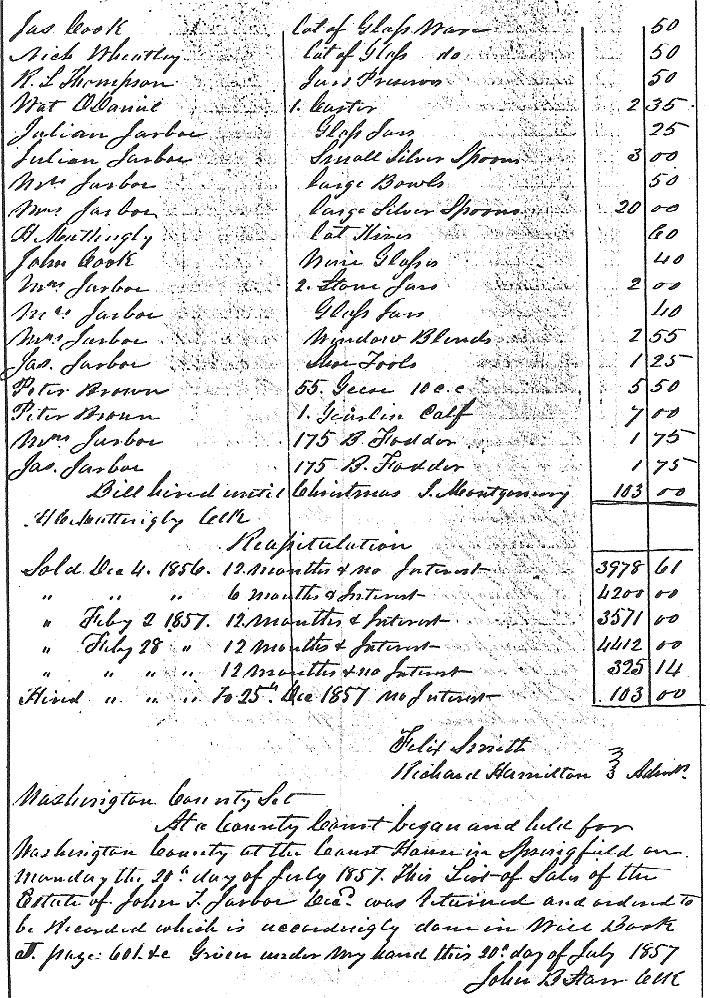 Jas Cook Lot of Glass Ware 50
Nick Wheatley Lot of Glass do 50
R. L Thompson Jars Preserves 50
Wat O Daniel 1. Caster 2 35
Julian Jarboe Glass Jars 25
Julian Jarboe Small Silver Spoons 3 00
Mrs Jarboe Large Bowls 50
Mrs Jarboe Large Silver Spoons 20 00
H Mattingly Lot Knives 60
John Cook Wine Glasses 40
Mrs Jarboe 2. Stone Jars 2 00
Mrs Jarboe Glass Jars 40
Mrs Jarboe Window Blends 2 55
Jas. Jarboe Tools 1 25
Peter Brown 55. Geese 10 c.c 5 50
Peter Brown 1. Calf 7 00
Mrs Jarboe 175 B Fodder 1 75
Jas. Jarboe 175 B. Fodder 1 75
Bill hired until Christmas J. Montgomery 103 00
H C Mattingly Clk
Recapitulation
Sold Dec 4. 1856. 12 months & no Interest 3978 61
" " " 6 months & Interest 4200 00
" Feby 2 1857. 12 months & Interest 3571 00
" Feby 28 " 12 months & Interest 4412 00
" " " " 12 months & no Interest 325 14
Hired " " " To 25th Dec 1857 no Interest 103 00
Felix Smith
Richard Hamilton } Admrs.
Washington County Sct
At a County Court began and held for
Washington County at the Court House in Springfield on
Monday the 20th day of July 1857. This List of Sales of the
Estate of John T. Jarboe Decd. was returned and ordered to
be Recorded which is accordingly done in Will Book
page 601 &c Given under my hand this 20th day of July 1857
John B Clk